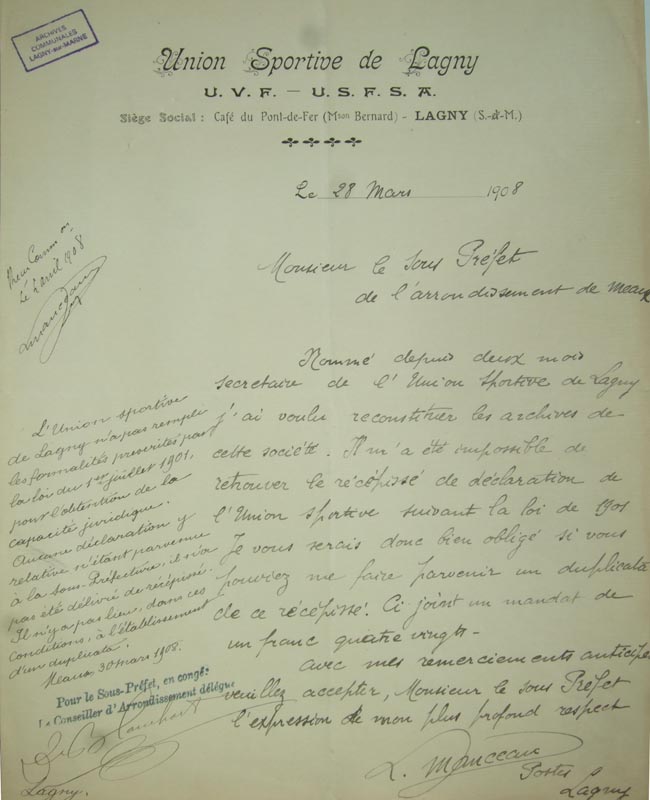 ARCHIVES
COMMUNALES
LAGNY-sur-MARNE
Union Sportive de Lagny
U. V. F. — U. S. F. S. A.
Siège Social : Café du Pont-de-Fer (Mson Bernard) - LAGNY (S.-&-M.)
Le 28 Mars 1908
Monsieur le Sous Préfet
de l'arrondissement de Meaux
Nommé depuis deux mois
secretaire de l'Union Sportive de Lagny
j'ai voulu reconstituer les archives de
cette société. Il m'a été impossible de
retrouver le récépissé de déclaration de
l'Union Sportive suivant la loi de 1901
Je vous serais donc bien obligé si vous
pouviez me faire parvenir un duplicata
de ce récépissé. Ci joint un mandat de
un franc quatre vingts -
avec mes remerciements anticipé
veuillez accepter, Monsieur le sous Préfet
l'expression de mon plus profond respect
L. Manceau
Postes
Lagny
le 2 avril 1908
LManceau
L'Union sportive
de Lagny n'a pas rempli
les formalités prescrites par
la loi du 1er juillet 1901,
pour l'obtention de la
capacité juridique.
Aucune déclaration y
relative n'étant parvenue
à la sous-Préfecture, il n'a
pas été délivré de récépissé.
Il n'y a pas lieu, dans ces
conditions, à l'établissement
d'un duplicata.
Meaux, 30 mars 1908.
Pour le Sous-Préfet, en congé:
Le Conseiller d'Arrondissement délégué
Lagny.